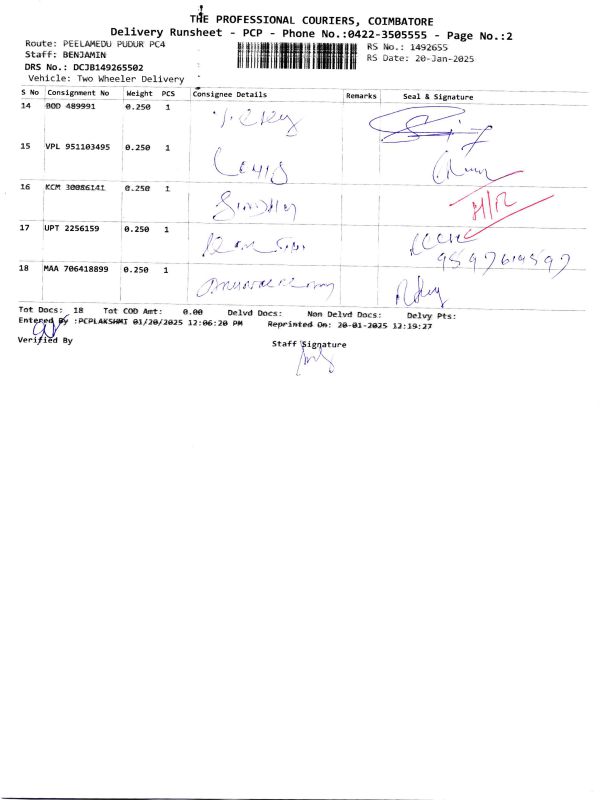 THE PROFESSIONAL COURIERS, COIMBATORE
Delivery Runsheet - PCP - Phone No.:0422-3505555 - Page No.:2
Route: PEELAMEDU PUDUR PC4
RS No.: 1492655
Staff: BENJAMIN
RS Date: 20-Jan-2025
DRS No.: DCJB149265502
Vehicle: Two Wheeler Delivery
S No Consignment No Weight PCS Consignee Details Remarks Seal & Signature
14 BOD 489991 0.250 1
15 VPL 951103495 0.250 1
16 KCM 30086141 0.250 1 SINDHU
17 UPT 2256159 0.250 1
18 MAA 706418899 0.250 1
Tot Docs: 18 Tot COD Amt: 0.00 Delvd Docs: Non Delvd Docs: Delvy Pts:
Entered By :PCPLAKSHMI 01/20/2025 12:06:20 PM Reprinted On: 20-01-2025 12:19:27
Verified By
Staff Signature